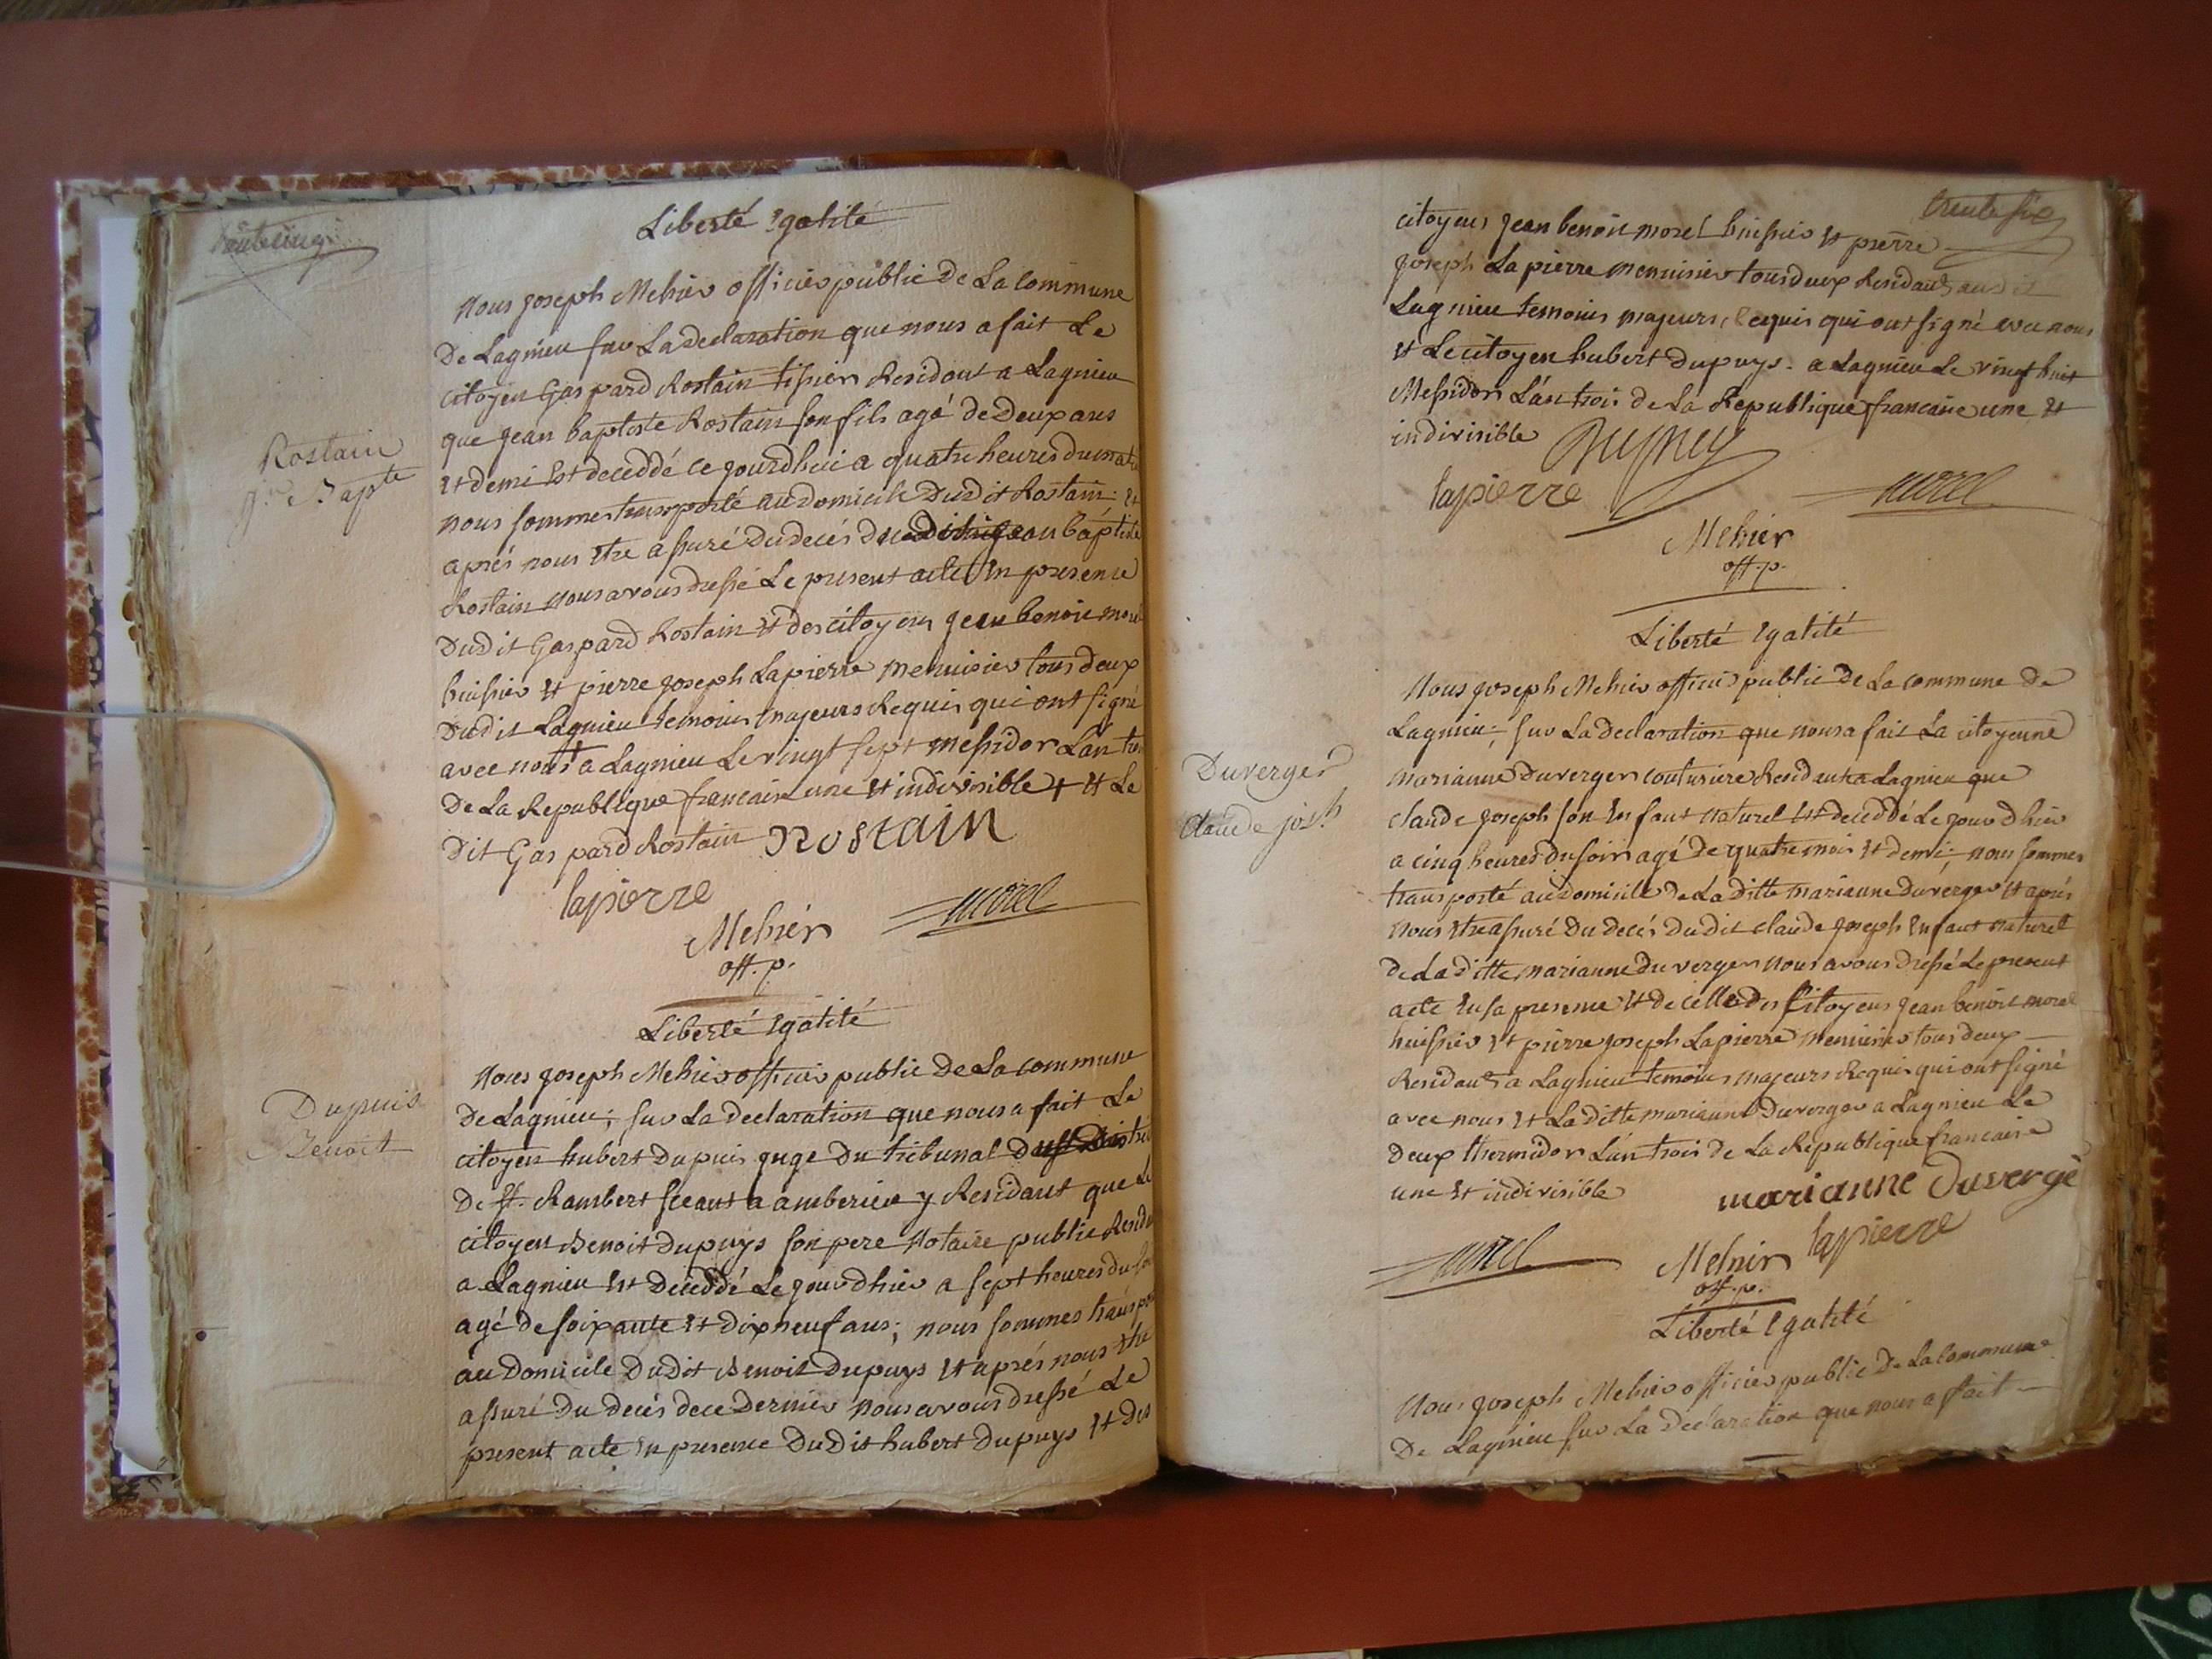 Liberté Egalité
trente cinq
Nous joseph Mehier officier public De La Commune
De Lagnieu sur La declaration que nous a fait Le
citoyen Gaspard Rostain tissier Residant a Lagnieu
que jean baptiste Rostain son fils agé de Deux ans
Et demi Est deceddé ce jourdhui a quatre heures du matin
Rostain
jn. Bapte
nous sommes transporté au domicile Dudit Rostain; Et
aprés nous Etre assuré du decés du jean baptiste
Rostain nous avons dressé Le present acte En presence
Dudit Gaspard Rostain Et des citoyens jean benoit morel
huissier Et pierre joseph Lapierre menuisier tous deux
Dudit Lagnieu temoins majeurs Requis qui ont signé
avec nous a Lagnieu Le vingt sept messidor L'an trois
De La Republique francaise une Et indivisible + Et Le
Dit Gaspard Rostain Rostain
lapierre
morel
Mehier
off. p.
Liberté Egalité
Nous joseph Mehier officier public De La commune
De Lagnieu; sur La declaration que nous a fait Le
Dupuis
Benoit
citoyen hubert Dupuis juge Du tribunal District
De St. Rambert sceant a amberieu y Residant que Le
citoyen Benoit dupuys son pere Notaire public
a Lagnieu Est deceddé Le jourdhier a sept heures du soir
agé de soixante Et dix neuf ans; nous sommes
au Domicile Dudit Benoit Dupuys Et aprés nous Etre
assuré Du decés de ce Dernier nous avons dressé Le
present acte En presence Dudit hubert Dupuys Et Des
trente six
citoyens jean benoit morel huissier Et pierre
joseph Lapierre menuisier tous deux Residants audit
Lagnieu temoins majeurs, Requis qui ont signé avec nous
Et Le citoyen hubert Dupuys. a Lagnieu Le vingt huit
Messidor L'an trois de La Republique francaise une Et
indivisible Dupuy
lapierre
morel
Mehier
off. p.
Liberté Egalité
Nous joseph Mehier officier public De La commune De
Lagnieu; sur La declaration que nous a fait La citoyenne
marianne Duverger couturiere Residante a Lagnieu que
Duverger
Claude josh
claude joseph son Enfant naturel Est deceddé Le jourdhier
a cinq heures du soir agé de quatre mois Et demi; nous sommes
transporté au domicile de La ditte marianne Duverger Et aprés
nous Etre assuré du decés Dudit claude joseph Enfant naturel
de La ditte marianne duverger nous avons Dressé Le present
acte En sa presence Et de celle des Citoyens jean benoit morel
huissier Et pierre joseph Lapierre menuisier tous deux
Residants a Lagnieu temoins majeurs Requis qui ont signé
avec nous Et La ditte marianne Duverger a Lagnieu Le
deux thermidor L'an trois de La Republique francaise
une Et indivisible
marianne Duvergé
morel
Mehier
lapierre
off. p.
Liberté Egalité
Nous joseph Mehier officier public De La commune
De Lagnieu sur La declaration que nous a fait